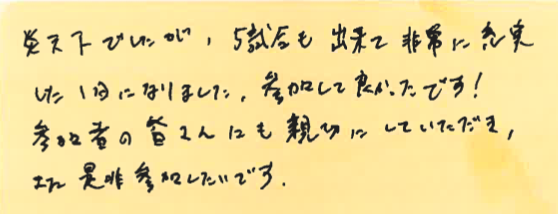 炎天下でしたが，5試合も出来て非常に充実
した1日になりました．参加して良かったです！
参加者の皆さんにも親切にしていただき，
また是非参加したいです．